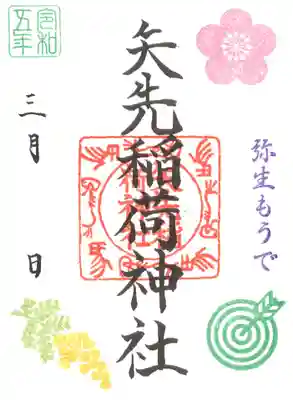 弥生もうで
矢先稲荷神社
令和
五年
三月 日